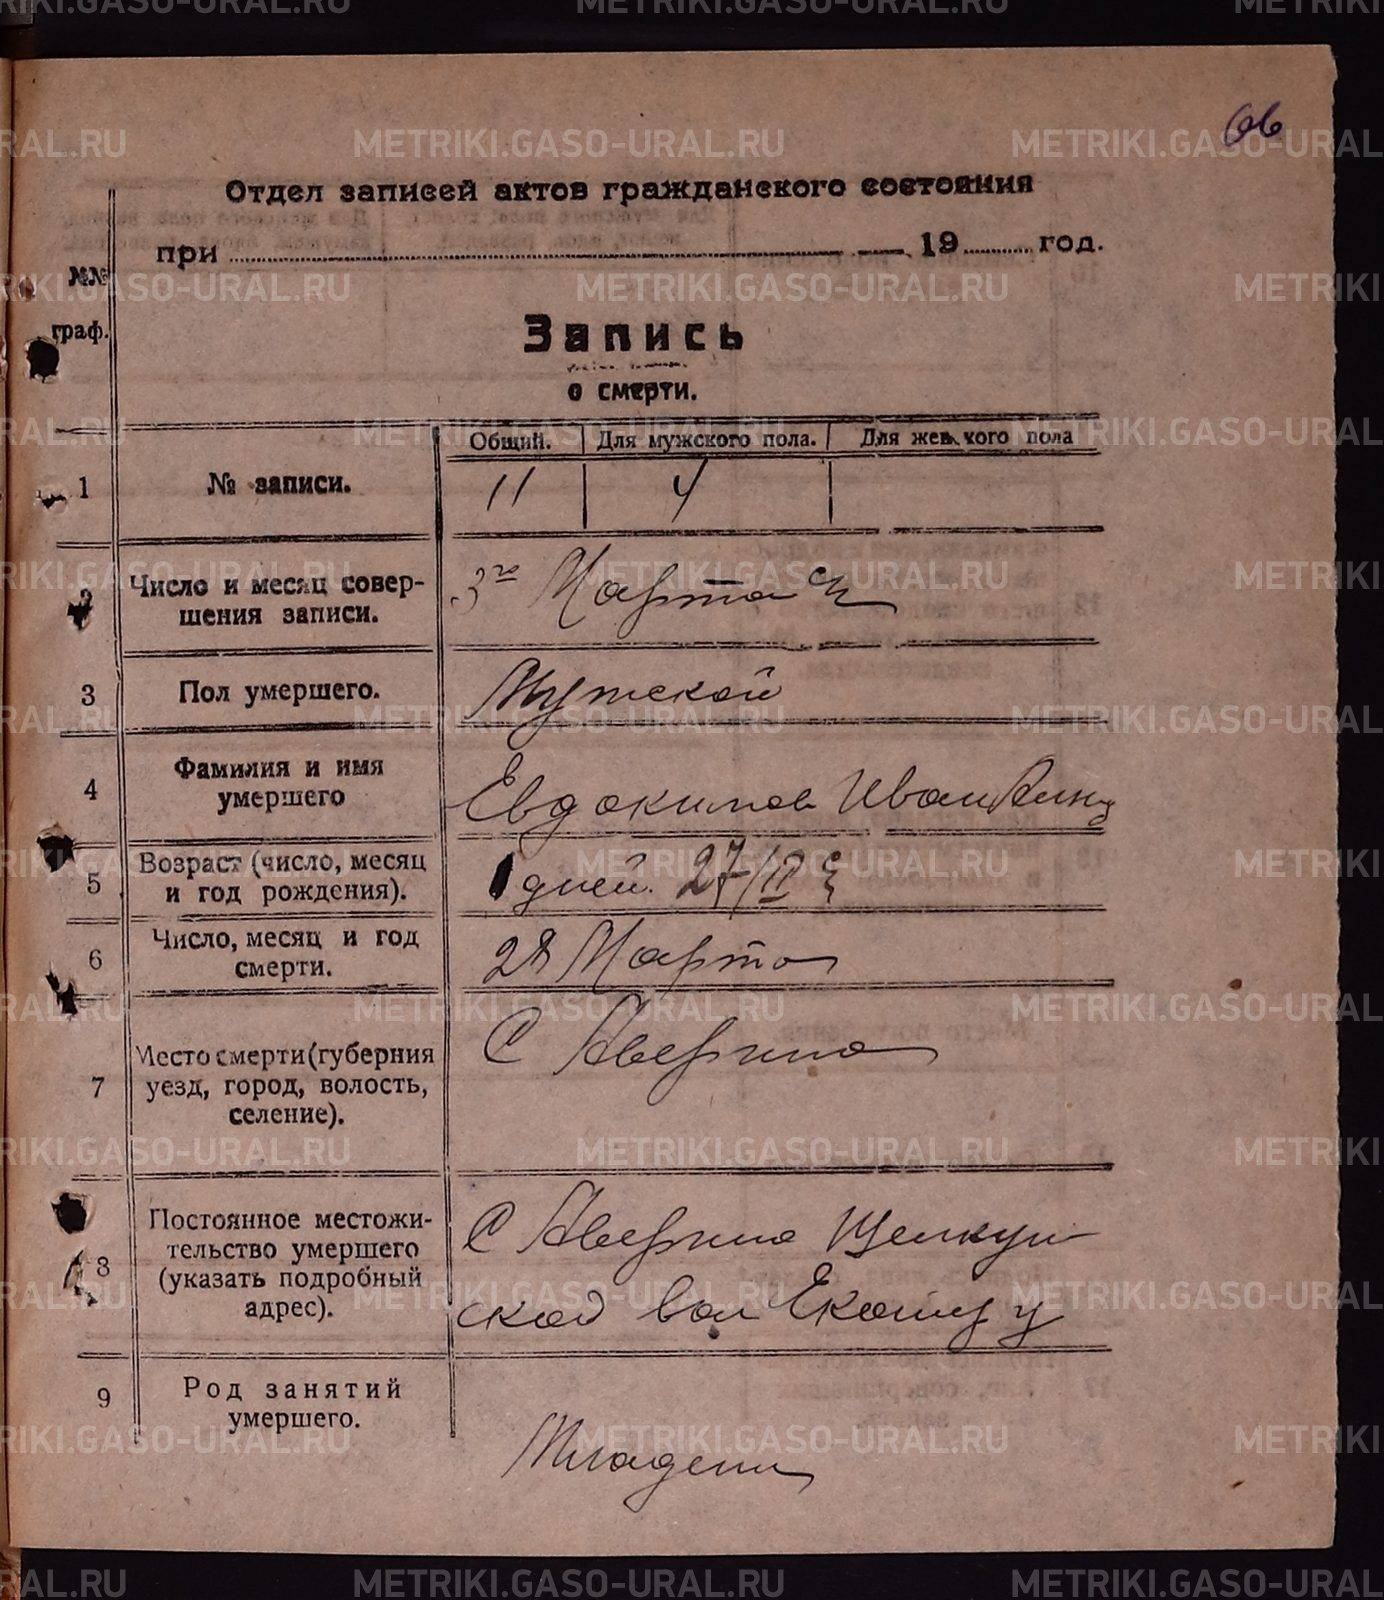 66
Отдел записей актов гражданского состояния
при 19 год.
№№
граф.
Запись
о смерти.
Общий. Для мужского пола. Для женского пола
1 № записи. 11 4
2 Число и месяц совер-
шения записи. 3го Марта
3 Пол умершего. Мужской
4 Фамилия и имя
умершего Евдокимов Иван
5 Возраст (число, месяц
и год рождения). дней. 27/II
6 Число, месяц и год
смерти. 28 Марта
7 Место смерти (губерния
уезд, город, волость,
селение). С Аверина
8 Постоянное местожи-
тельство умершего
(указать подробный
адрес). С Аверина Щелкун
ской вол Екатер у
9 Род занятий
умершего.
Младенец
METRIKI.GASO-URAL.RU